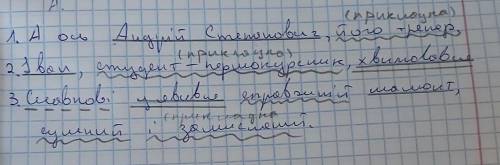 (прикладка)
1. А ось Андрій Степанович, його тренер,
(прикладка)
2. Іван, студент – першокурсник, хвилювався
3. Славкові уявився справжній мамонт,
(прикладка)
сумний і замислений.